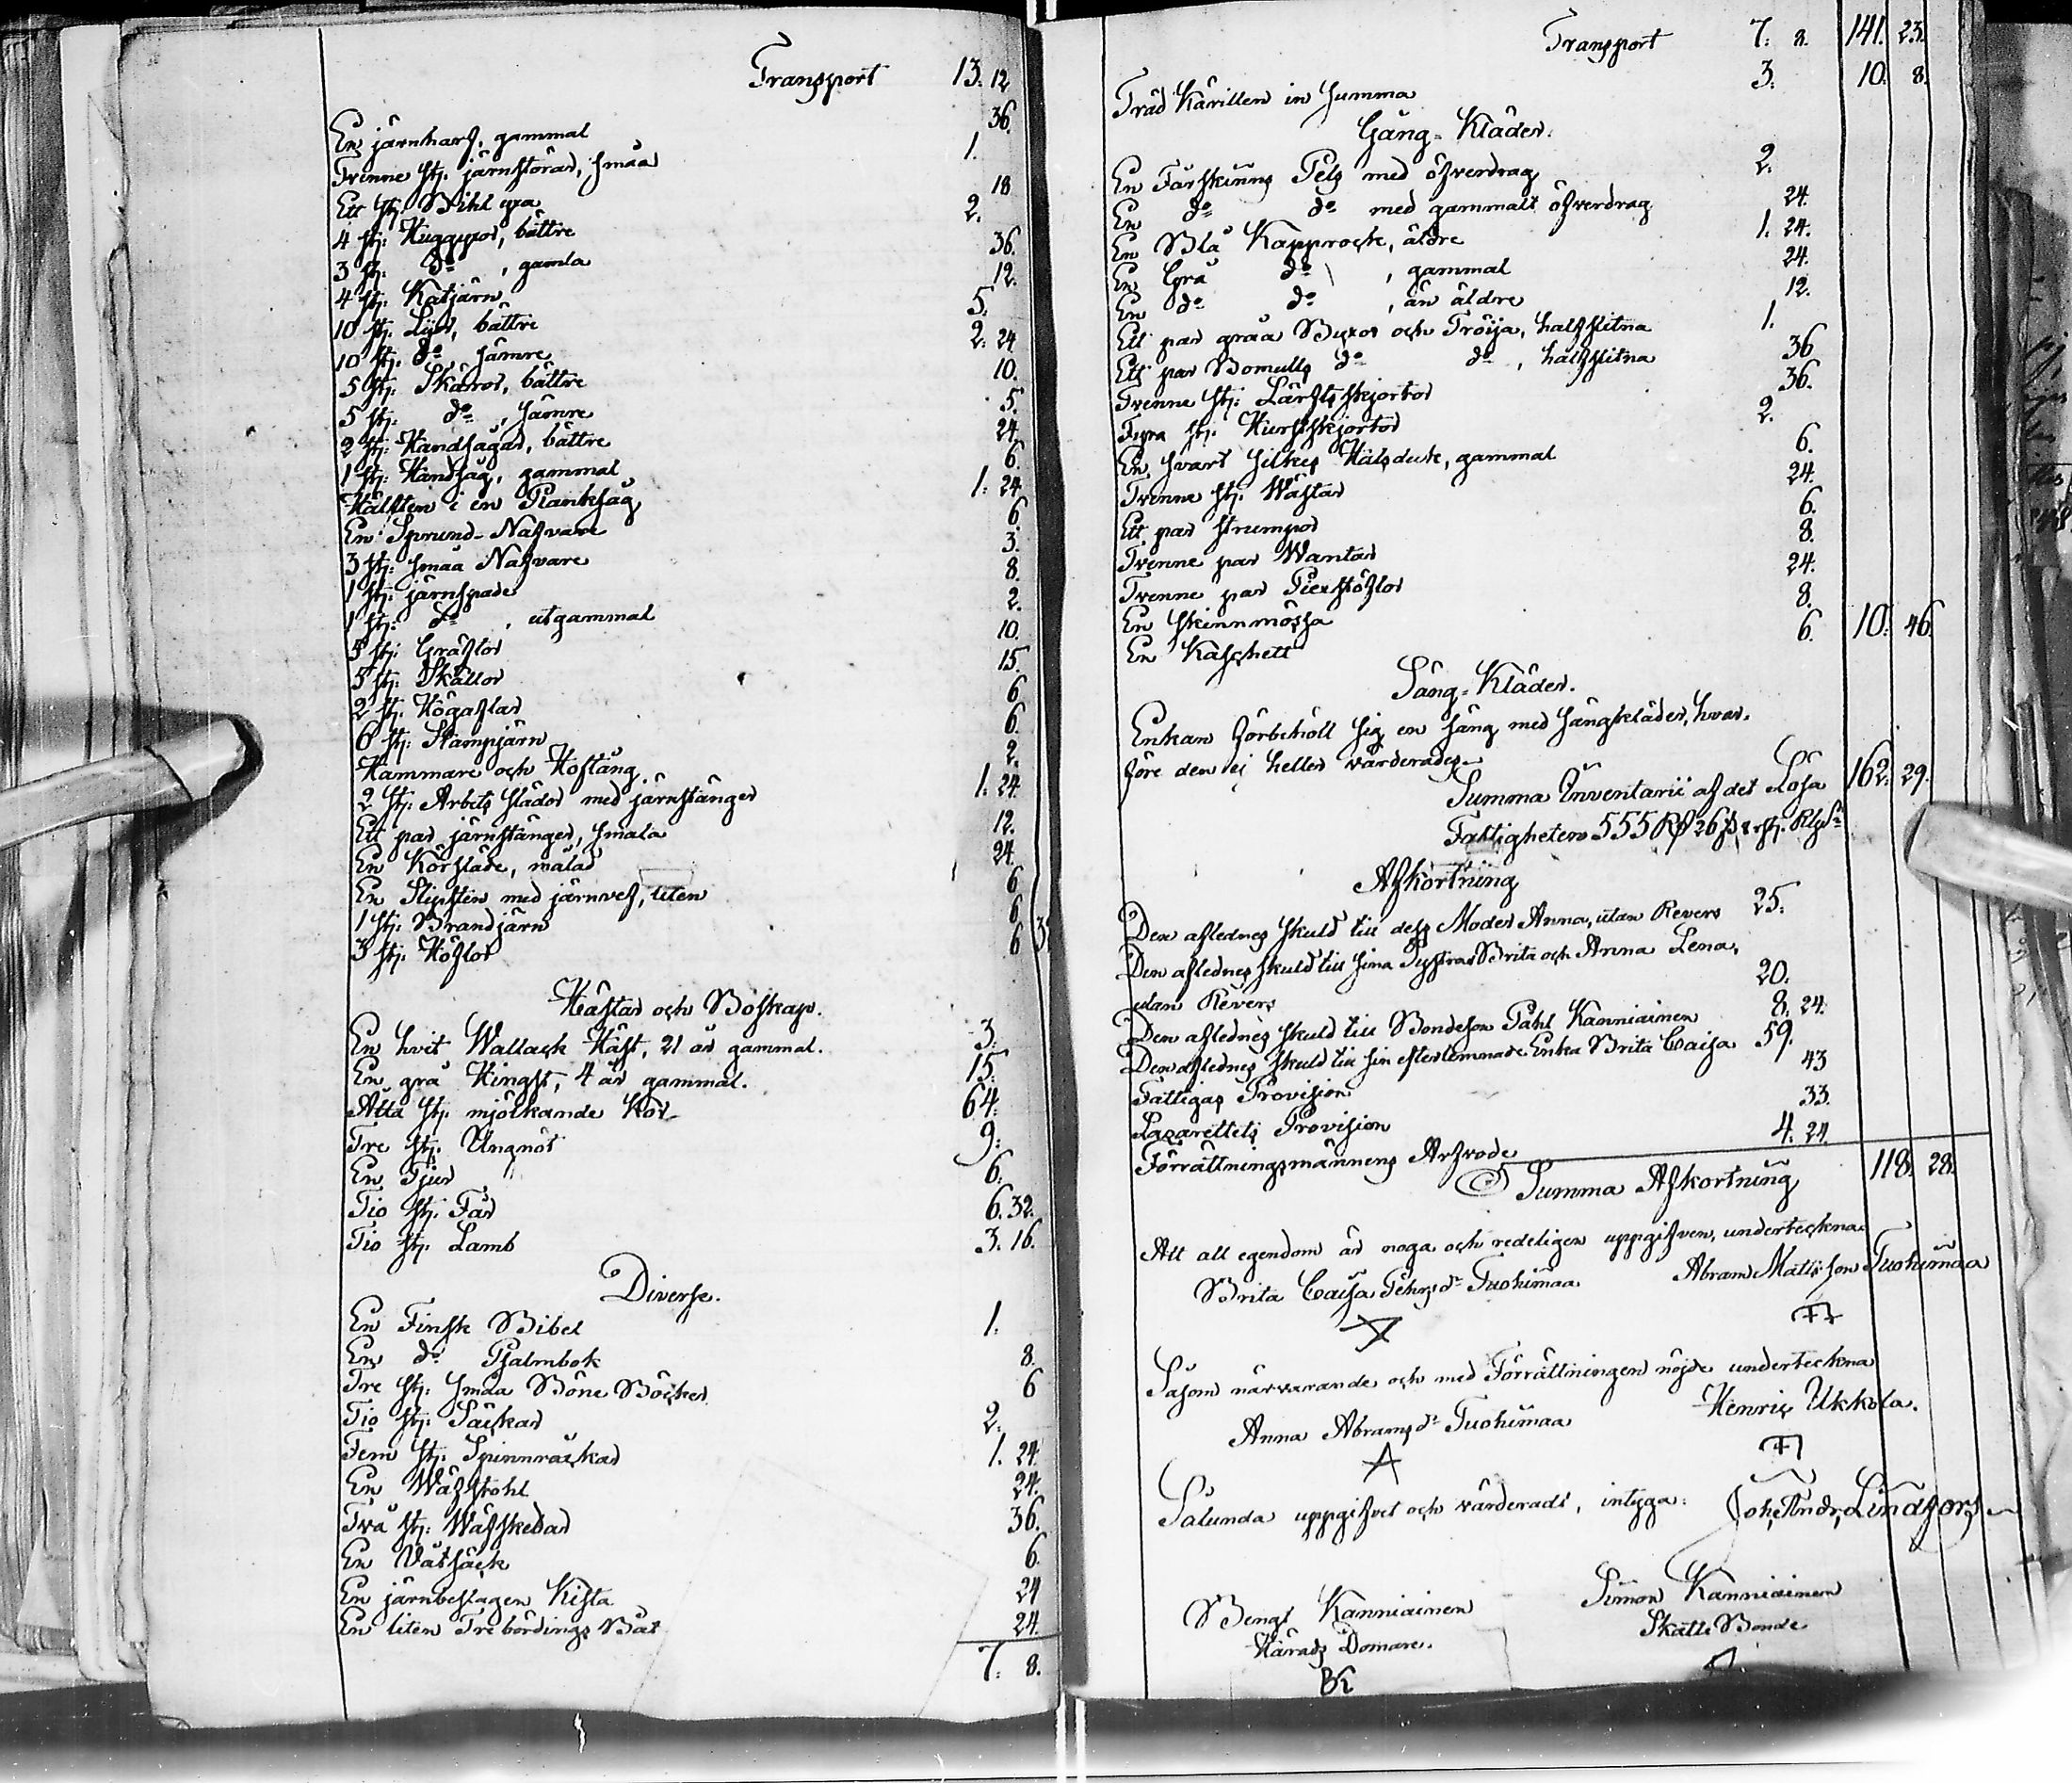 Transport 13. 12
En järnharf, gammal 36.
Trenne st: järnstörar, smäa 1.
Ett st: Bihl 18
4 st: Huggyxor, bättre 2.
3 st: do , gamla 36.
4 st: Katjärn 12.
10 st: Lijar, bättre 5.
10 st: do , sämre 2. 24
5 st: Skäror, bättre 10.
5 st: do , sämre 5.
2 st: Handsågar, bättre 24.
1 st: Handsåg, gammal 6.
Hälften i en Planksåg 1. 24
En Sprund-Nafvare 6.
3 st: smäa Nafvare 3.
1 st: järnspade 8.
1 st: do , utgammal 2.
5 st: Gräflor 10.
5 st: Skällor 15.
2 st: Högaflar 6
6 st: Stampjärn 6.
Hammare och Hoftång 2.
2 st: Arbets slädor med järnstänger 1. 24.
Ett par järnstänger, smala 12.
En Körsläde, målad 24.
En Slipsten med järnvef, liten 6
1 st: Brandjärn 6
3 st: Höflor 6
Hästar och Boskap.
En hvit Wallack Häst, 21 år gammal. 3.
En grå Hingst, 4 år gammal. 15.
Åtta st: mjölkande Kor 64.
Tre st: Ungnöt 9.
En Tjur 6.
Tio st: Får 6. 32.
Tio st: Lamb 3. 16.
Diverse.
En Finsk Bibel 1.
En do Psalmbok 8.
Tre st: smäa Böne Böcker 6
Tio st: Säckar 2.
Fem st: Spinnråckar 1. 24
En Wäfstohl 24.
Två st: Wäfskedar 36.
En Vätsäck 6.
En järnbeslagen Kista 24
En liten Tre bördings Båt 24.
7. 8.
Transport 7. 8. 141. 23.
Träd Kärillen in summa 3. 10. 8.
Gång-Kläder.
En Fårskinns Pels med öfverdrag 2.
En do do med gammalt öfverdrag 24.
En Blå Kapprock, äldre 1. 24.
En Grå do , gammal 24.
En do do , än äldre 12.
Ett par gråa Byxor och Tröija, halfslitna 1.
Ett par Bomulls do do , halfslitna 36
Trenne st: Lärfts skjortor 36.
Fyra st: Hurstskjortor 2.
En svart silkes Halsduk, gammal 6.
Trenne st: Wästar 24.
Ett par strumpor 6.
Trenne par Wantar 8.
Trenne par Piexstöflor 24.
En skinnmössa 8.
En Kaschett 6. 10. 46.
Säng-Kläder.
Enkan förbehöll sig en säng med sängkläder, hvar-
före den ej heller värderades.
Summa Inventarii af det Lösa 162. 29.
Fastigheten 555 26
Afkortning
Den aflednes skuld till dess Moder Anna, utan Revers 25.
Den aflednes skuld till sina Systrar Brita och Anna Lena,
utan Revers 20.
Den aflednes skuld till Bondeson Påhl Kanniainen 8. 24.
Den aflednes skuld till sin efterlemnade Enka Brita Caisa 59.
Fattigas Provision 43
Lazarettets Provision 33.
Förrättningsmännens Arfvode 4. 24.
Summa Afkortning 118. 28.
Att all egendom är noga och redeligen uppgifven, underteckna
Brita Caisa Pehrsdr Tuohimaa Abram Matisson Tuohimaa
Såsom närvarande och med Förrättningen nöjde underteckna
Anna Abramsdr Tuohimaa Henric Ukkola.
Sålunda uppgifvet och värderadt, intyga: Joh. Andr. Lindfors
Bengt Kanniainen Simon Kanniainen
Härads Domare. Skatte Bonde
BK